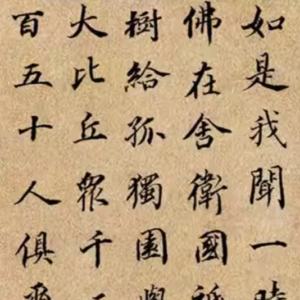 如是我聞一時
佛在舍衛國祇
樹給孤獨園與
大比丘眾千
百五十人俱爾